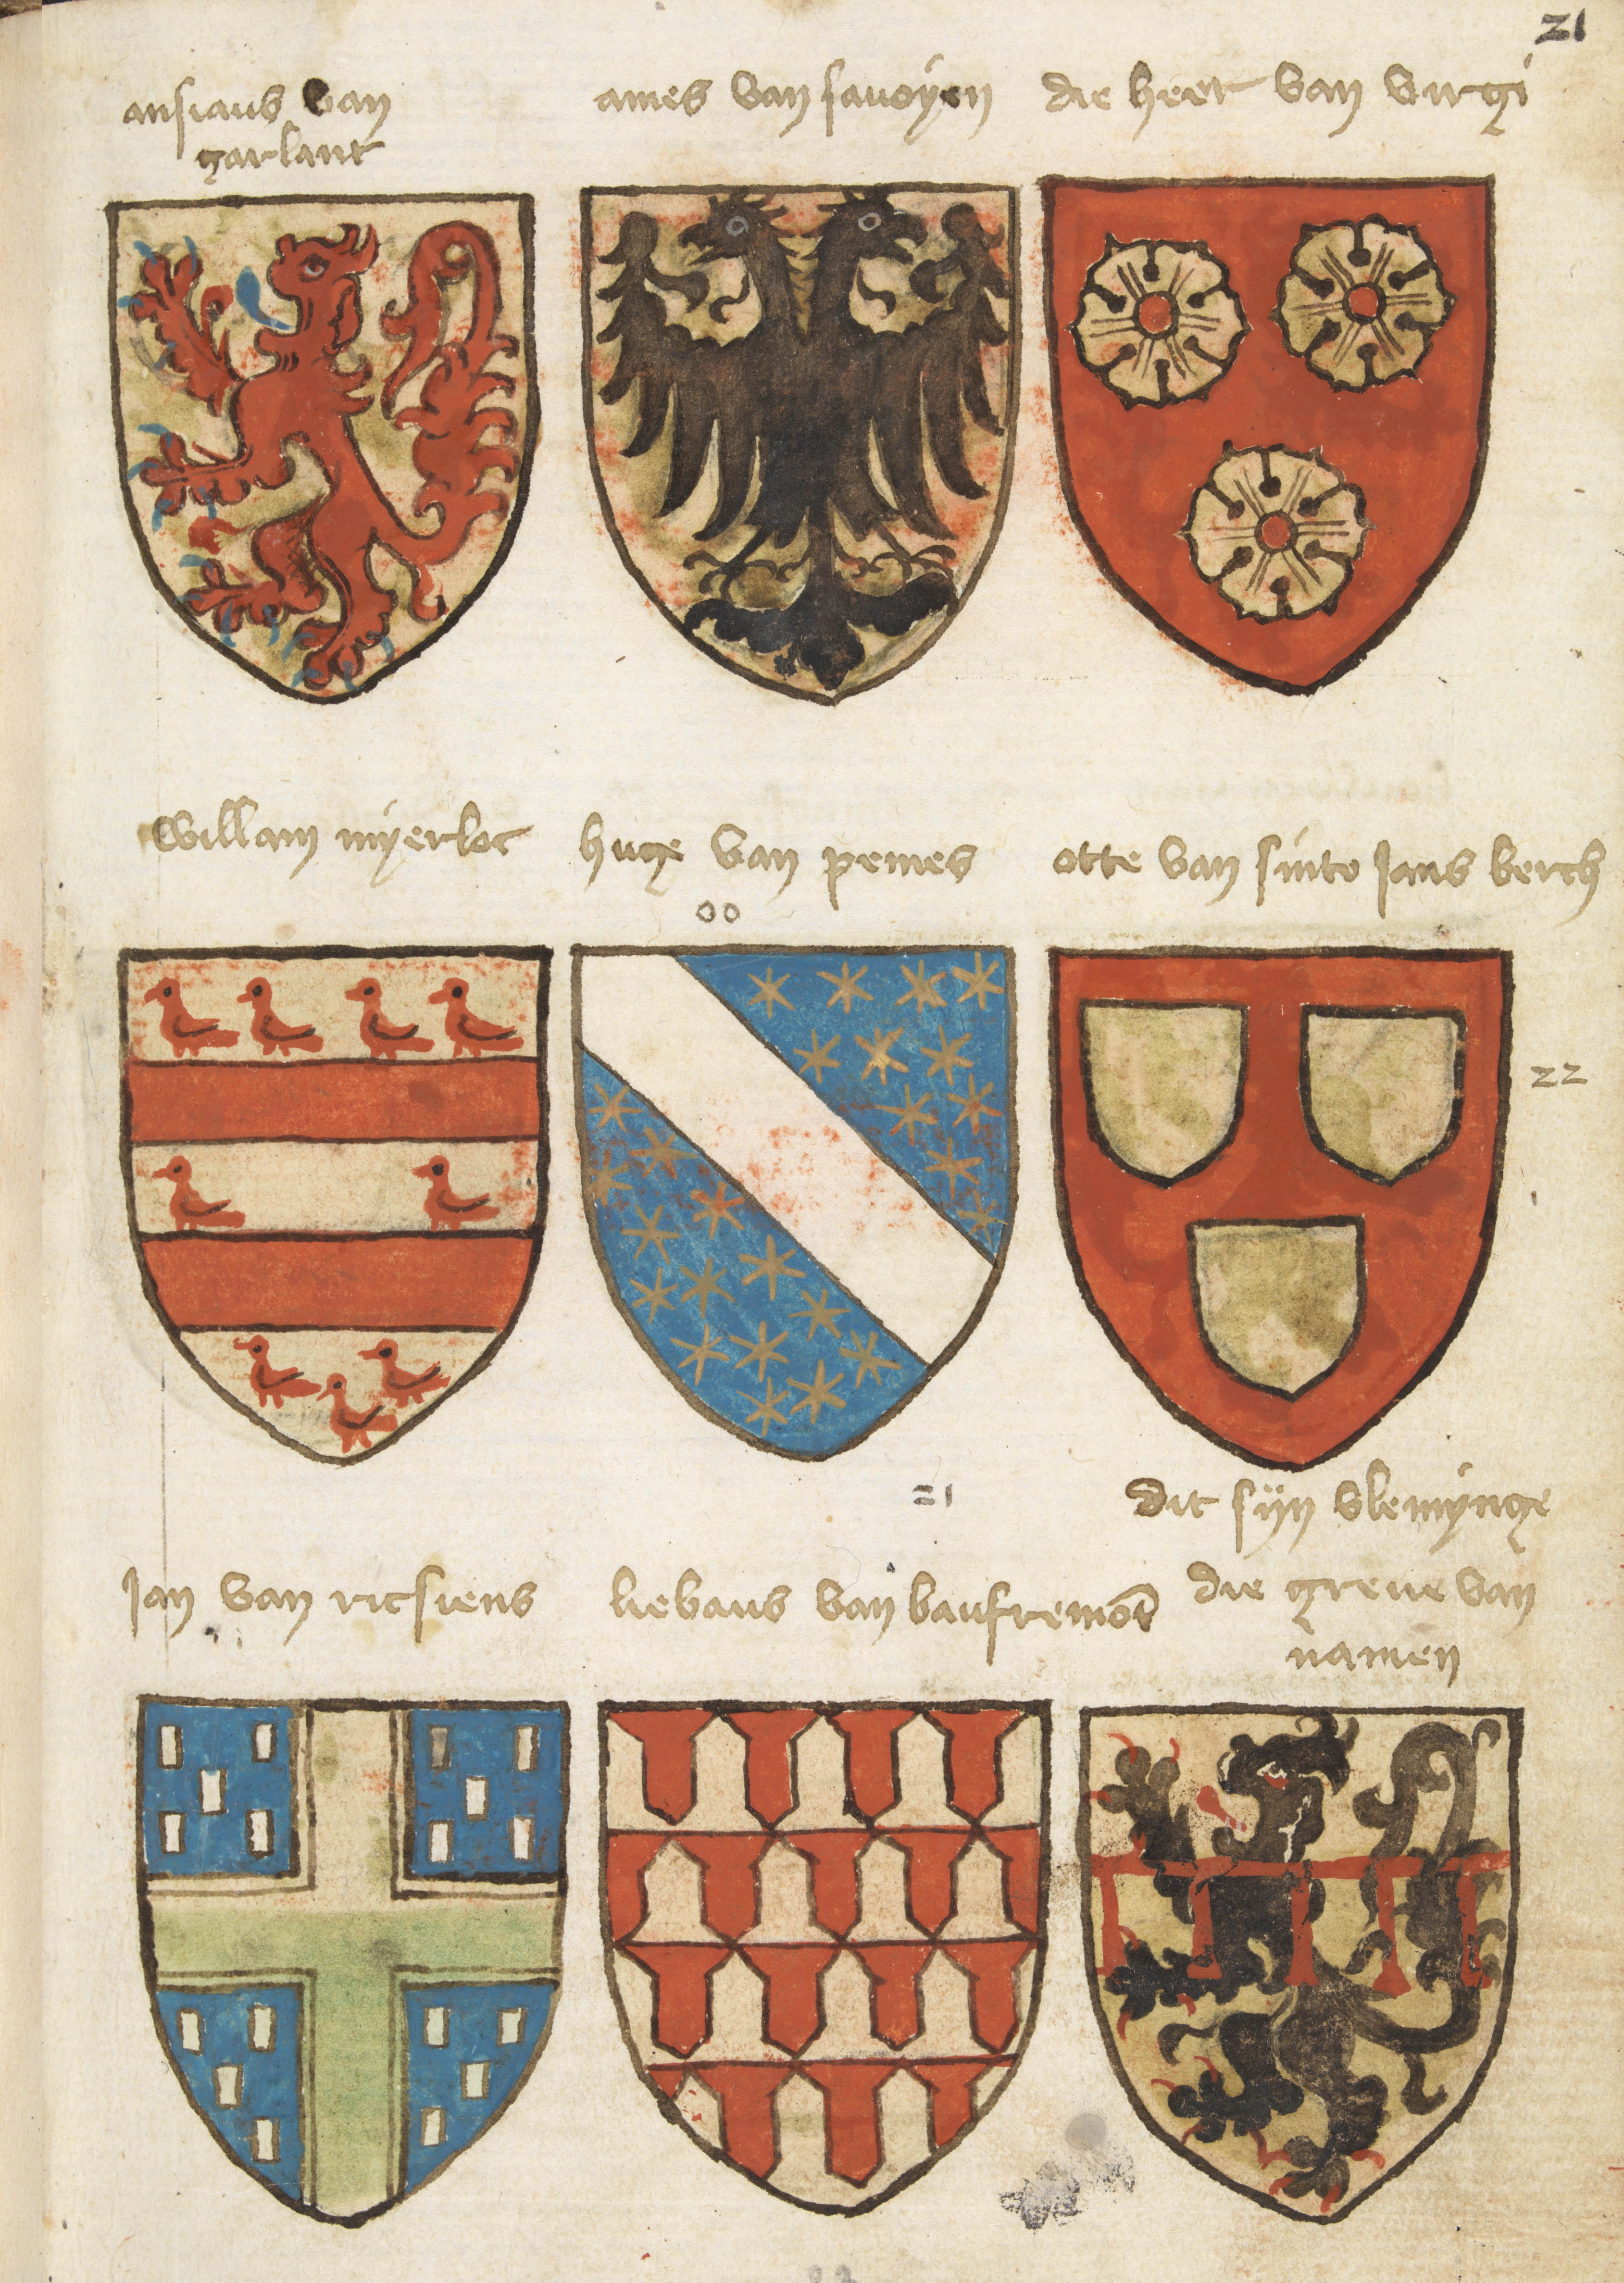 21
ansiaus van
garlant
ames van savoyen
die heer van virgi
willam myerloc
huge van pemes
otte van sinte Jans berch
00
22
21
dit sijn vlemynge
Jan van ricsiens
liebaus van baufremōt
die greve van
namen